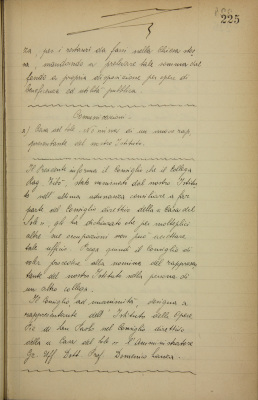 225
za, per i restauri da farsi nella Chiesa stes
sa, mandando a prelevare tale somma dal
fondo a propria disposizione per opere di
beneficenza ed utilità pubblica.
Comunicazioni.
a) Casa del Sole - di un nuovo rap
presentante del nostro Istituto.
Il Presidente informa il Consiglio che il Collega
Rag. Vito, stato nominato dal nostro Istitu
to nell'ultima adunanza consiliare a far
parte del Consiglio direttivo della "Casa del
Sole", gli ha dichiarato che per molteplici
altre sue occupazioni non può accettare
tale ufficio. Prega quindi il Consiglio di
voler procedere alla nomina del rappresen
tante del nostro Istituto nella persona di
un altro collega.
Il Consiglio ad unanimità, designa a
rappresentante dell'Istituto delle Opere
Pie di San Paolo nel Consiglio direttivo
della "Casa del Sole" l'Amministratore
Gr. Uff. Dott. Prof. Domenico